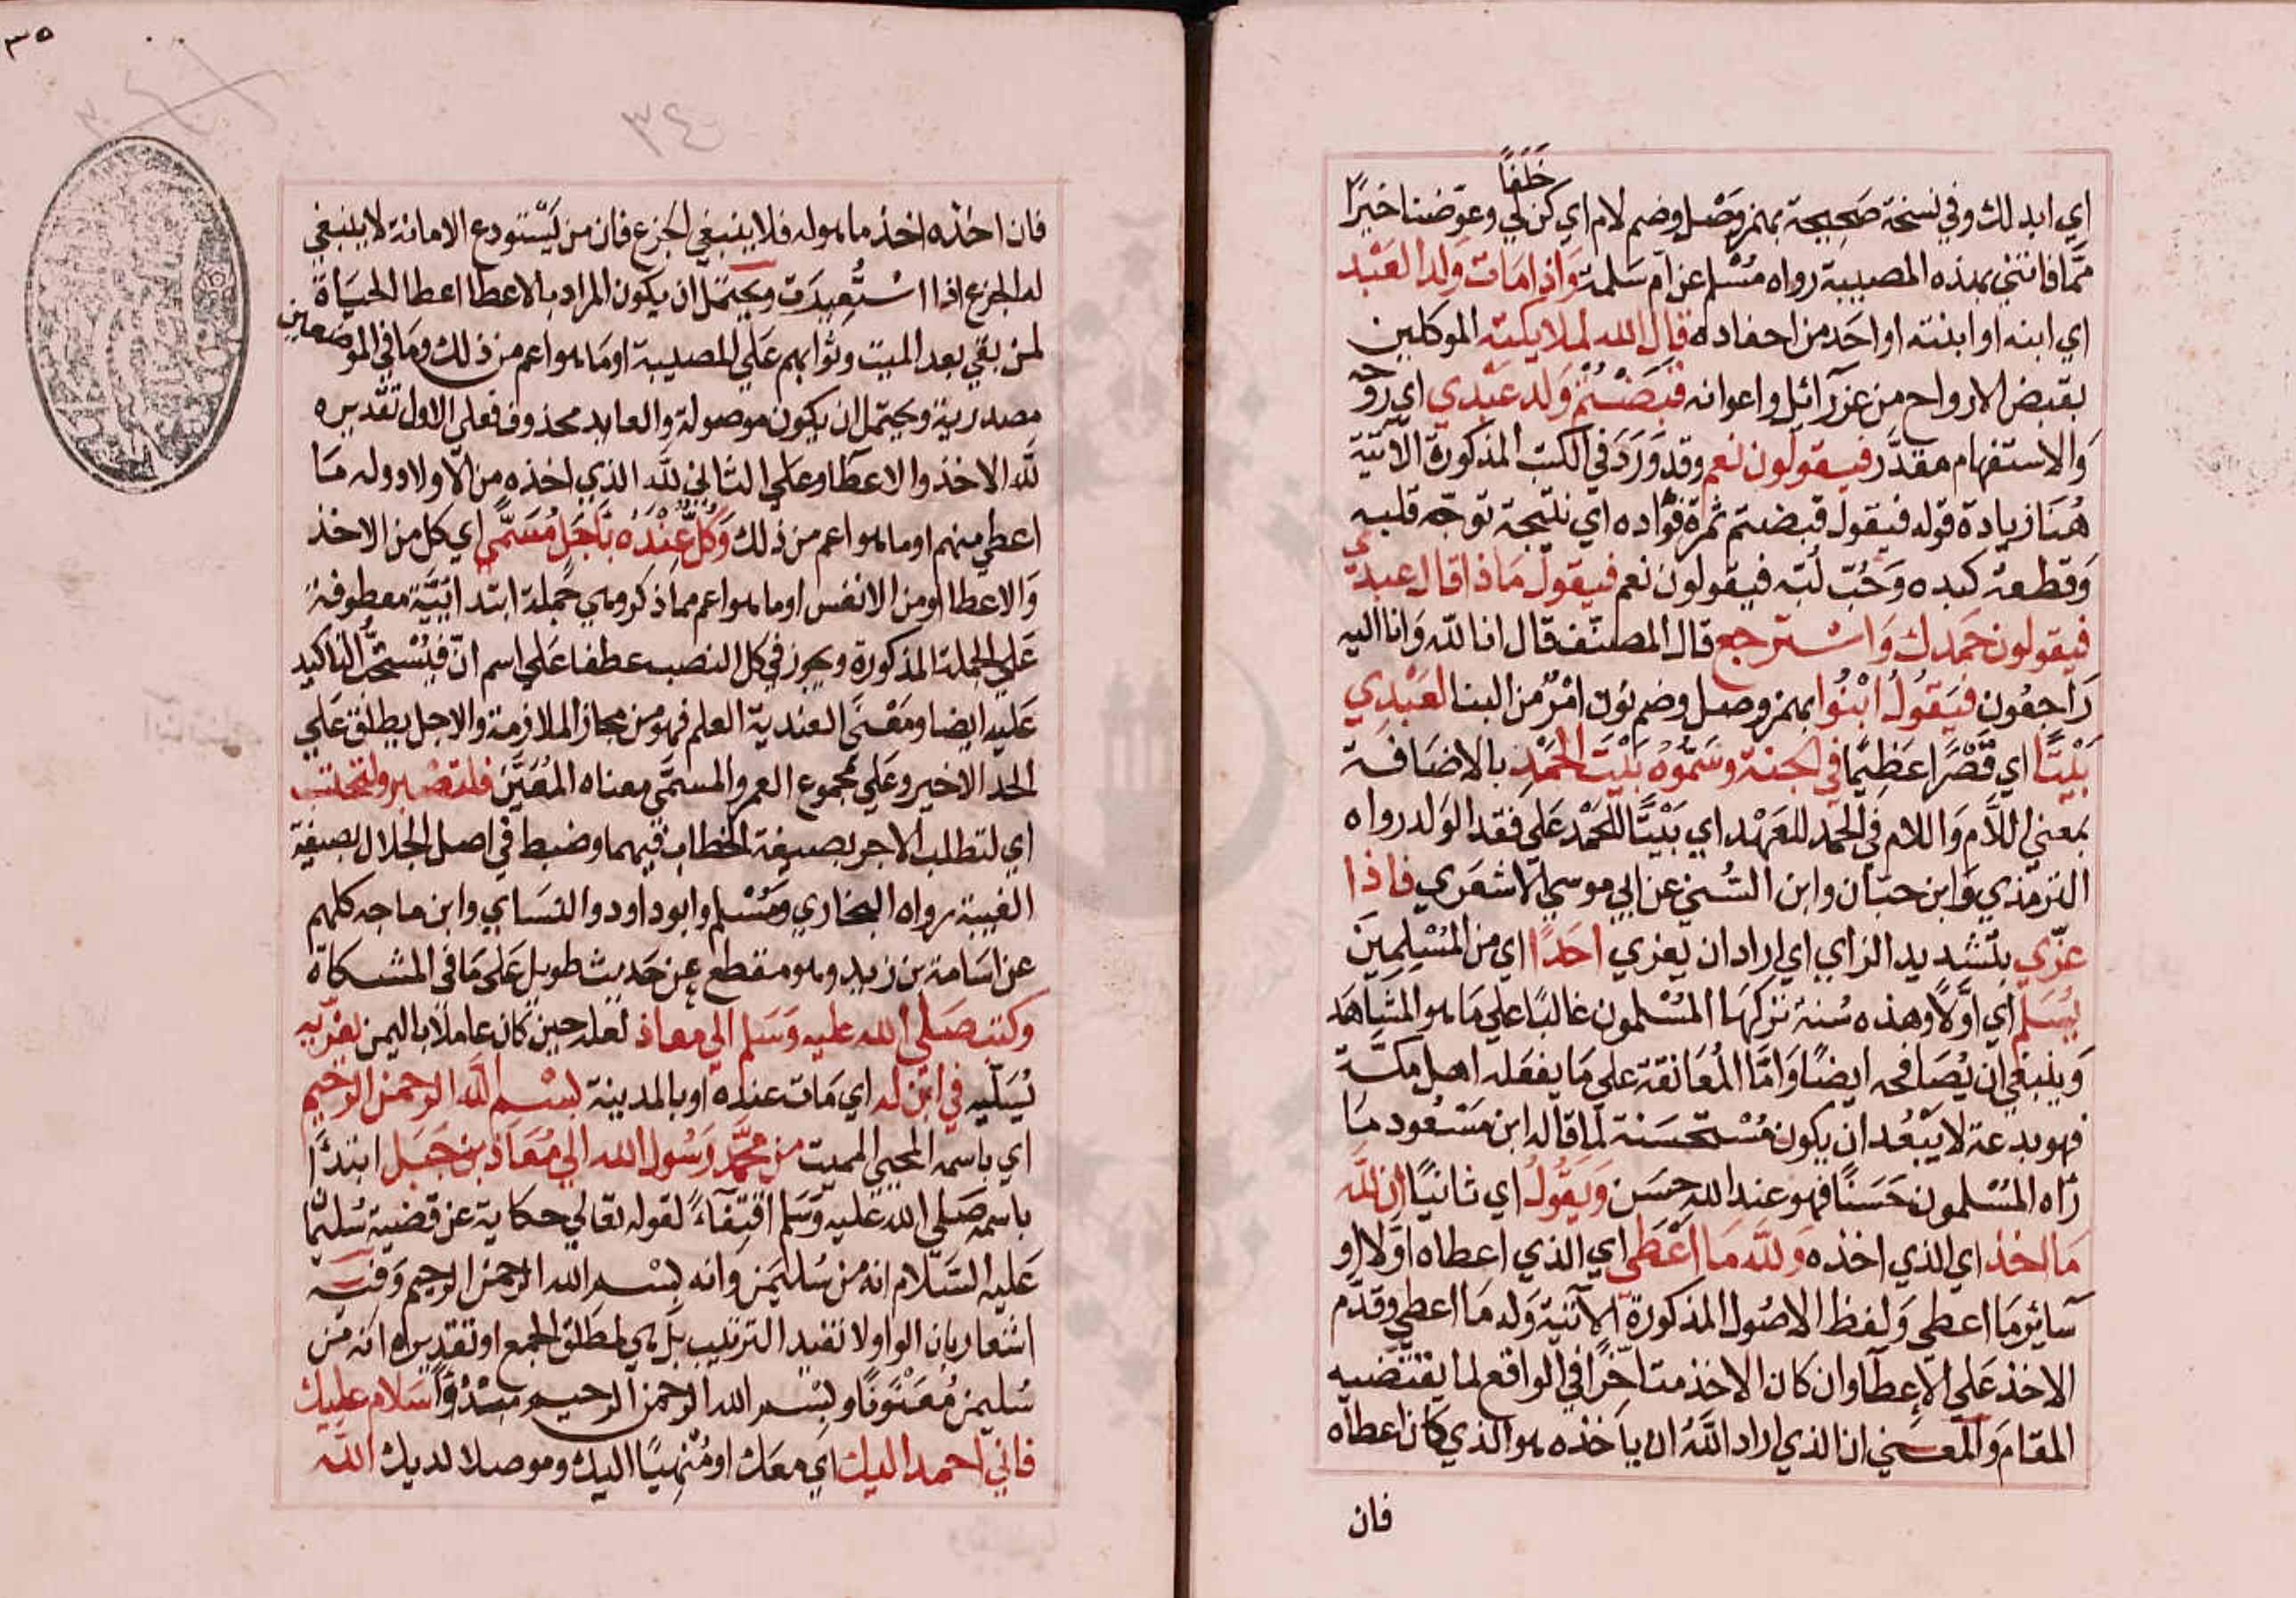 خَلَفًا
اي ابدلك وفي نسخة صَحِيحة بهمز وَصْل وضم لام اي كن لي وعوّضنا خيرًا
ممّا فاتني بهذه المصيبة رواه مُسْلم عن ام سَلمة وَاذا مَات وَلد العَبْد
اي ابنه او ابنته او احَد من احفاده قال الله لملايكته الموكلين
بقبض الارواح من عزرآئل واعوانه قَبَضْتُمْ وَلد عَبْدي اي رَوحه
وَالاستفهام مقدّر فيقولون نعم وقد وَرَدَ في الكتب المذكورة الاتية
هُنا زيادة قوله فيقول قبضتم ثمرة فؤاده اي نتيجة توجّه قلبه
وَقطعة كبده وَحُبّ لُبّه فيقولون نعم فيقول مَاذا قال عبدي
فيقولون حَمَدك وَاسْترجع قال المصنّف قال انا لله وَانا اليه
رَاجعُون فيَقوُلُ ابْنُوا بهمز وصل وضم نون امْرٌ من البنا لعَبْدِي
بَيْتًا اي قَصْرًا عَظِيمًا في الجنة وسَمّوُهُ بَيْتَ الحَمْدِ بالاضَافة
بمعني اللاَّم وَاللام في الحمد للعَهْد اي بَيْتًا للحَمْد عَلي فقد الوَلد رواه
الترمذي وَابن حبّان وابن السُّني عن ابي موسي الاشعَري فاذا
عزّي بتشديد الزاي اي اراد ان يعزي احَدًا اي من المُسْلِمِينَ
يُسَلّم اي اوّلاً وهذه سُنة تركهَا المُسْلمون غالبًا علي مَا هو المشَاهَد
وَينبغي ان يُصَافحه ايضًا وَامَّا المُعَانقة علي مَا يفعَله اهل مكة
فهو بدعة لا يَبْعُد ان يكون مُسْتحسَنة لما قاله ابن مَسْعُود مَا
رَاه المُسْلمون حَسَنًا فهو عند الله حسَن وَيَقُولُ اي ثانيًا ان لله
مَا اخذ اي الذي اخذه وَلله مَا اعْطَى اي الذي اعطاه اوّلا او
سَآئر مَا اعطي وَلفظ الاصُول المذكورة الآتية وَله مَا اعطي وقدّم
الاخذ عَلي الإعطآ وان كان الاخذ متاخّرًا في الواقع لما يقتضيه
المقام وَالمعنَي ان الذي اراد اللهُ ان ياخذه هو الذي كان اعطاه
فان
٣٥
٣٤
فان اخذه اخذ ما هو له فلا ينبغي الجَزع فان من يَسْتودع الامانة لا ينبغي
له الجزع اذا اسْتُعِيدَت ويحتمل ان يكون المراد بالاعطا اعطا الحيَاة
لمن بقي بعد الميت وثوابهم عَلي المصيبة او مَا هو اعم من ذلك ومَا في الموضعين
مصدرية ويحتمل ان يكون موصولة والعايد محذوف فعلي الاول تقديره
لله الاخذ والاعطا وعلي الثاني لله الذي اخذه من الاولاد وله مَا
اعطي منهم او ما هو اعم من ذلك وَكُلٌّ عِنْدَهُ بأجَلٍ مُسَمًّى اي كل من الاخذ
وَالاعطا او من الانفس او ما هو اعم مما ذكر وهي جُملة ابتدائيّة معطوفة
عَلي الجملة المذكورة ويجوز في كل النصب عطفا عَلي اسم انّ فيُسْتحبّ التاكيد
عَليه ايضا ومَعْنَى العندية العلم فهو من مجاز الملازمة والاجل يطلق عَلي
الحد الاخير وعَلي مجموع العمر والمسمَّى معناه المُعَيَّن فلتصْبر ولتحتسب
اي لتطلب الاجر بصيغة الخطاب فيهما وضبط في اصل الجلال بصيغة
الغيبة رواه البخاري ومُسْلم وابوداود والنسَاي وابن ماجه كلهم
عن اسَامة بن زيد وهو مقطع من حَديث طويل عَلَى مَا في المشكاة
وكتب صَلي الله عليه وَسَلم الي معاذ لعله حين كان عاملا باليمن يعزّيه
يُسَلّيه في ابْن له اي مَات عنده او بالمدينة بسْم الله الرحمن الرحيم
اي باسمه المحيي المميت من محمّد رَسُول الله الي مُعَاذ بن جَبَل ابتدأ
باسمه صَلي الله عليه وَسَلم اقتِفآءً لقوله تعالي حكاية عن قضية سُليمَا
عَليه السّلام انه من سُليمن وانه بسْم الله الرحمن الرحيم وَفيه
اشعار بان الواو لا تفيد الترتيب بل هي لمطلق الجمع او تقديره انه من
سُليمن مُعَنْوَنًا وبسْم الله الرحمن الرحيم مبْدُوًّا سَلام عليك
فاني احمد اليك اي معَك او مُنْهِيًا اليك وموصلا لديك الله